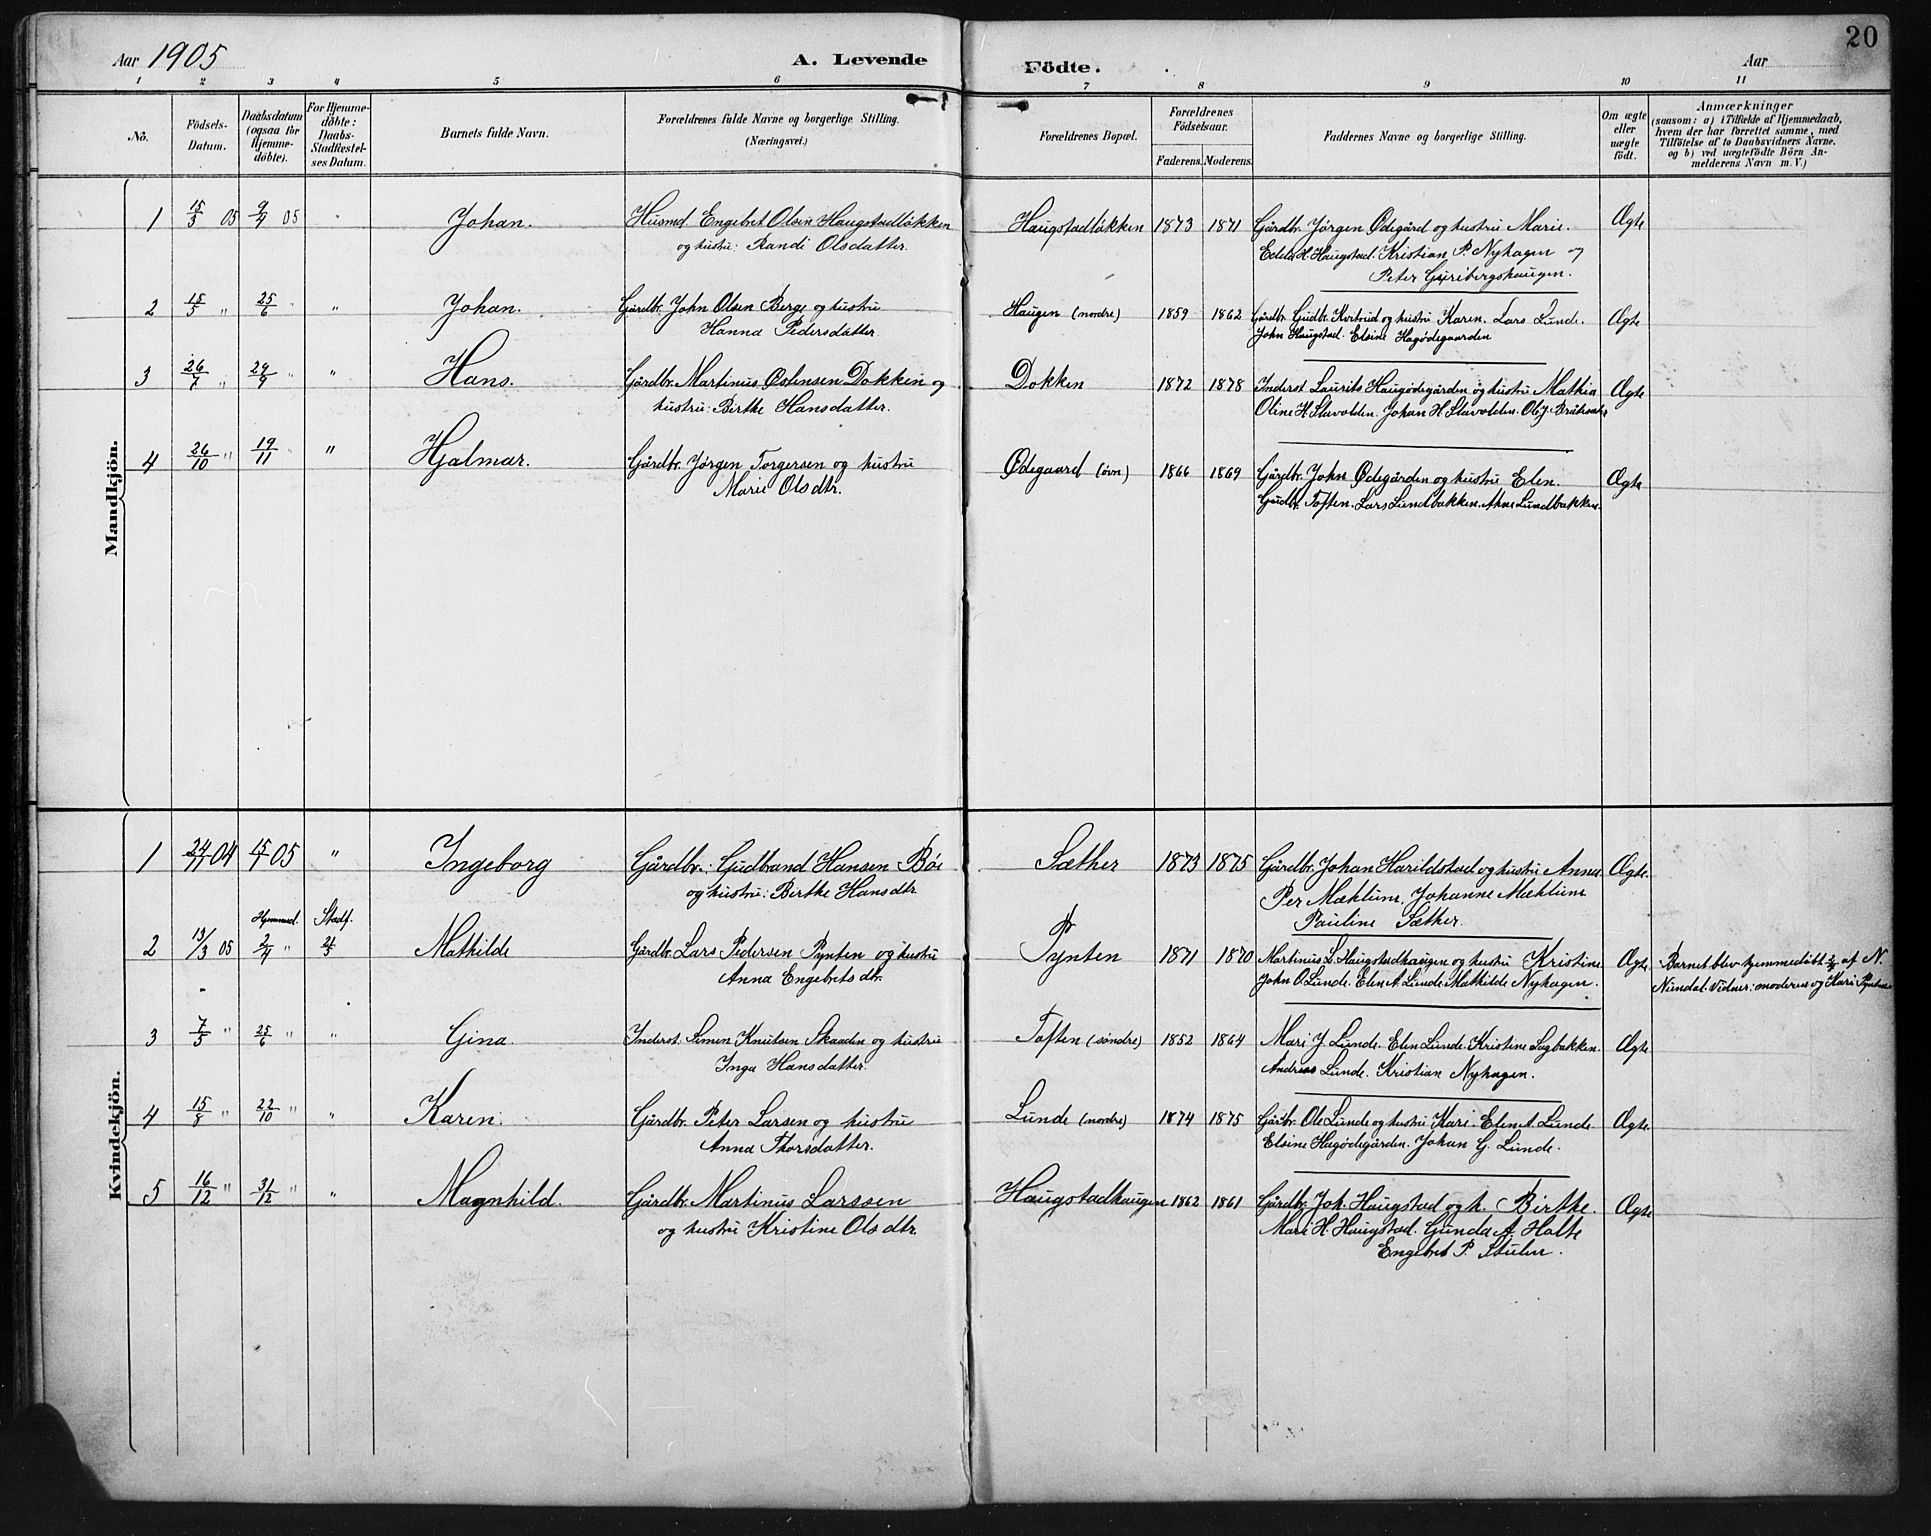 Aar 1905
A. Levende
Födte.
Aar
20
1 2 3 4 5 6 7 8 9 10 11
No.
Födsels-
Datum.
Daabsdatum
(ogsaa for
Hjemme-
döbte).
For Hjemme-
döbte:
Daabs-
Stadfæstel-
ses Datum.
Barnets fulde Navn.
Forældrenes fulde Navne og borgerlige Stilling.
(Næringsvei.)
Forældrenes Bopæl.
Forældrenes
Födselsaar.
Faderens. Moderens.
Faddernes Navne og borgerlige Stilling.
Om ægte
eller
uægte
födt.
Anmærkninger
(saasom: a) i Tilfælde af Hjemmedaab,
hvem der har forrettet samme, med
Tilföielse af to Daabsvidners Navne,
og b) ved uægtefödte Börn An-
melderens Navn m. V.)
Mandkjön.
1 15/3 05 9/4 05 " Johan. Husmd. Engebret Olsen Haugstadløkken Haugstadløkken 1873 1871 Gårdbr. Jørgen Ødegård og hustru Marie. Ægte
og hustru: Randi Olsdatter. H. Haugstad. Kristian P. Nyhagen og
Peter Guribergshaugen.
2 15/5 " 25/6 " " Johan. Gårdbr. John Olsen Berge og hustru Haugen (nordre) 1859 1862 Gårdbr. Gudbr. Kvitrud og hustru Karen. Lars Lunde. Ægte
Hanna Pedersdatter. John Haugstad. Elsine Hagødegaarden
3 26/7 " 24/9 " " Hans. Gårdbr. Martinus Østensen Dokken og Dokken 1872 1878 Inderst Laurits Haugødegården og hustru Mathia Ægte
hustru: Birthe Hansdatter. Oline H. Slavolden. Johan H. Slavolden.
4 26/10 " 19/11 " " Hjalmar. Gårdbr. Jørgen Torgersen og hustru Ødegaard (øvr) 1866 1869 Gårdbr. John Ødegården og hustru Elen. Ægte
Marie Olsdtr. Gudbr. Toften. Lars Lundbakken. Anne Lundbakken.
Kvindekjön.
1 24/11 04 15/1 05 " Ingeborg Gårdbr.: Gudbrand Hansen Bøe Sæther 1873 1875 Gårdbr. Johan Harildstad og hustru Anne Ægte.
og hustru: Birthe Hansdtr. Per Mæhlum. Johanne Mæhlum
Pauline Sæther.
Hjemmed. Stadf.
2 13/3 05 2/4 " Mathilde Gårdbr. Lars Pedersen Pynten og hustru Pynten 1871 1870 Martinus L. Haugstadhaugen og hustru Kristine. Ægte. Barnet blev hjemmedøbt 2/4 af N.
Anna Engebretsdtr. John O. Lunde. Elen A. Lunde. Mathilde Nyhagen. Nundal. Vidner: moderen og Kari Pynten
3 7/5 " 25/6 " " Gina. Inderst. Simen Knutsen Skaaden og hustru Toften (søndre) 1852 1864 Mari J. Lunde. Elen Lunde. Kristine Lagbakken. Ægte
Inga Hansdatter. Andreas Lunde. Kristian Nyhagen.
4 15/8 " 22/10 " " Karen. Gårdbr. Peter Larsen og hustru Lunde (nordre) 1874 1875 Gårbr. Ole Lunde og hustru Kari. Elen A. Lunde Ægte.
Anna Thorsdatter. Elsine Hagødegården. Johan G. Lunde.
5 16/12 " 31/12 " " Magnhild. Gårdbr. Martinus Larssen Haugstadhaugen 1862 1861 Gårdbr. Joh. Haugstad og h. Birthe. Ægte
og hustru Kristine Olsdtr. Mari H. Haugstad. Gunda A. Holte
Engebret P. Stulen.